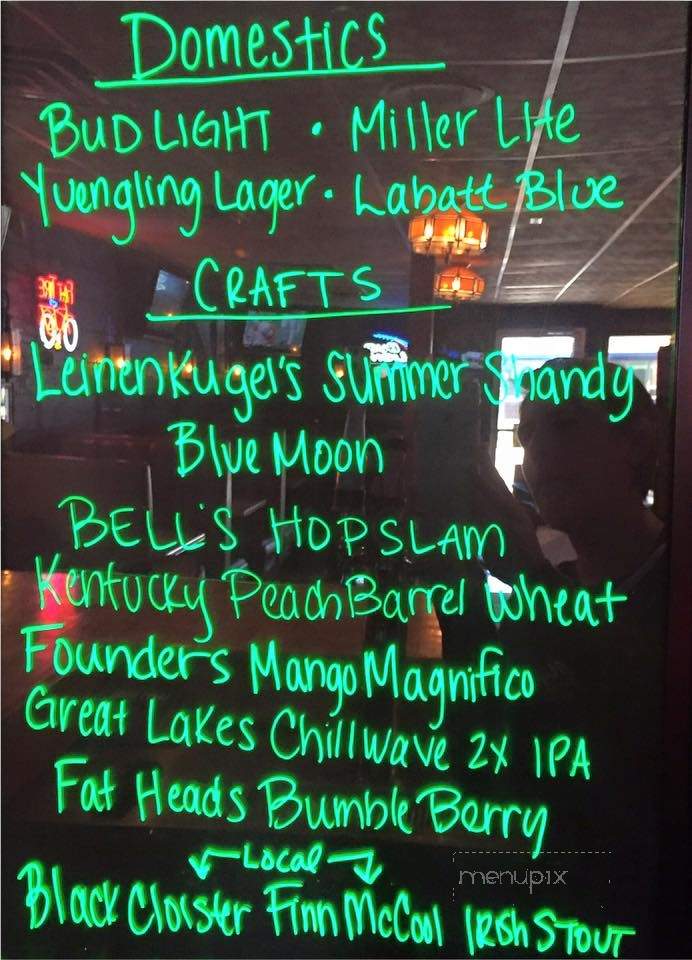 Domestics
BUD LIGHT • Miller Lite
Yuengling Lager • Labatt Blue
CRAFTS
FAT TIRE
Leinenkugel's Summer Shandy
Blue Moon
BELL'S HOPSLAM
Kentucky Peach Barrel Wheat
Founders Mango Magnifico
Great Lakes Chillwave 2x IPA
Fat Heads Bumble Berry
Local
menupix
Black Cloister Finn McCool IRISH STOUT